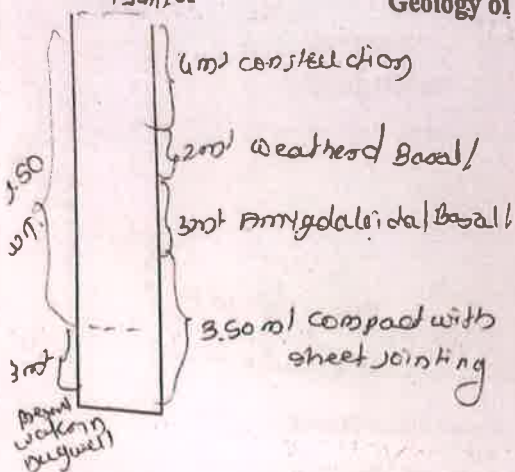 Geology of
4mt construction
2mt weatherd Basalt
3mt Amigdaloidal Basalt
3.50 mt compact with
sheet jointing
9.50
mt.
3mt
water in
Dugwell